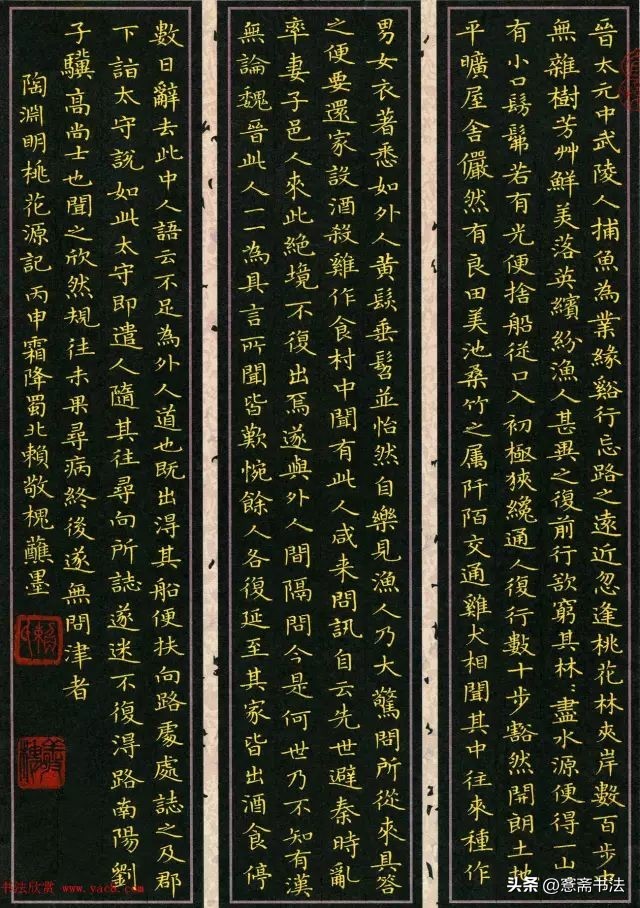 晉太元中武陵人捕魚為業緣谿行忘路之遠近忽逢桃花林夾岸數百步中
無雜樹芳艸鮮美落英繽紛漁人甚異之復前行欲窮其林〻盡水源便得一山
有小口髣髴若有光便捨船從口入初極狹纔通人復行數十步豁然開朗土地
平曠屋舍儼然有良田美池桑竹之属阡陌交通雞犬相聞其中往來種作
男女衣著悉如外人黄髮垂髫並怡然自樂見漁人乃大驚問所從來具答
之便要還家設酒殺雞作食村中聞有此人咸来問訊自云先世避秦時亂
率妻子邑人來此絶境不復出焉遂與外人間隔問今是何世乃不知有漢
無論魏晉此人一一為具言所聞皆歎惋餘人各復延至其家皆出酒食停
數日辭去此中人語云不足為外人道也既出得其船便扶向路處處誌之及郡
下詣太守説如此太守即遣人隨其往尋向所誌遂迷不復得路南陽劉
子驥高尚士也聞之欣然規往未果尋病終後遂無問津者
陶淵明桃花源記丙申霜降蜀北賴敬槐蘸墨
賴
书法欣赏 www.yac8.com
头条 @窻斋书法